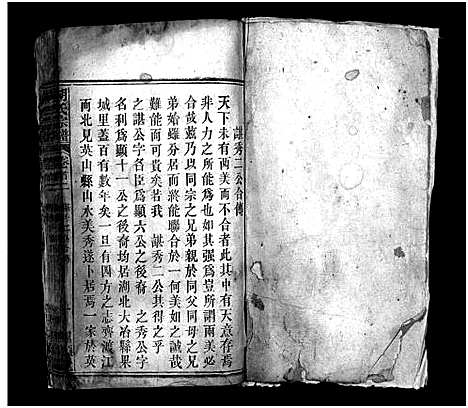 諶秀二公合傳
天下未有兩美而不合者此其中有天意存焉
非人力之所能爲也如其强爲豈所謂兩美必
合哉茲乃以同宗之兄弟親於同父同母之兄
弟始雖分居而終能聯合於一何美如之誠哉
難能而可貴矣若我 諶秀二公其得之乎
之諶公字名臣爲顯六公之後裔 之秀公字
名利爲顯十一公之後裔均居湖北大冶縣果
城里蓋百有數年矣一有四方之志齊渡江
而北見英山縣山水美秀遂卜居焉一家於英